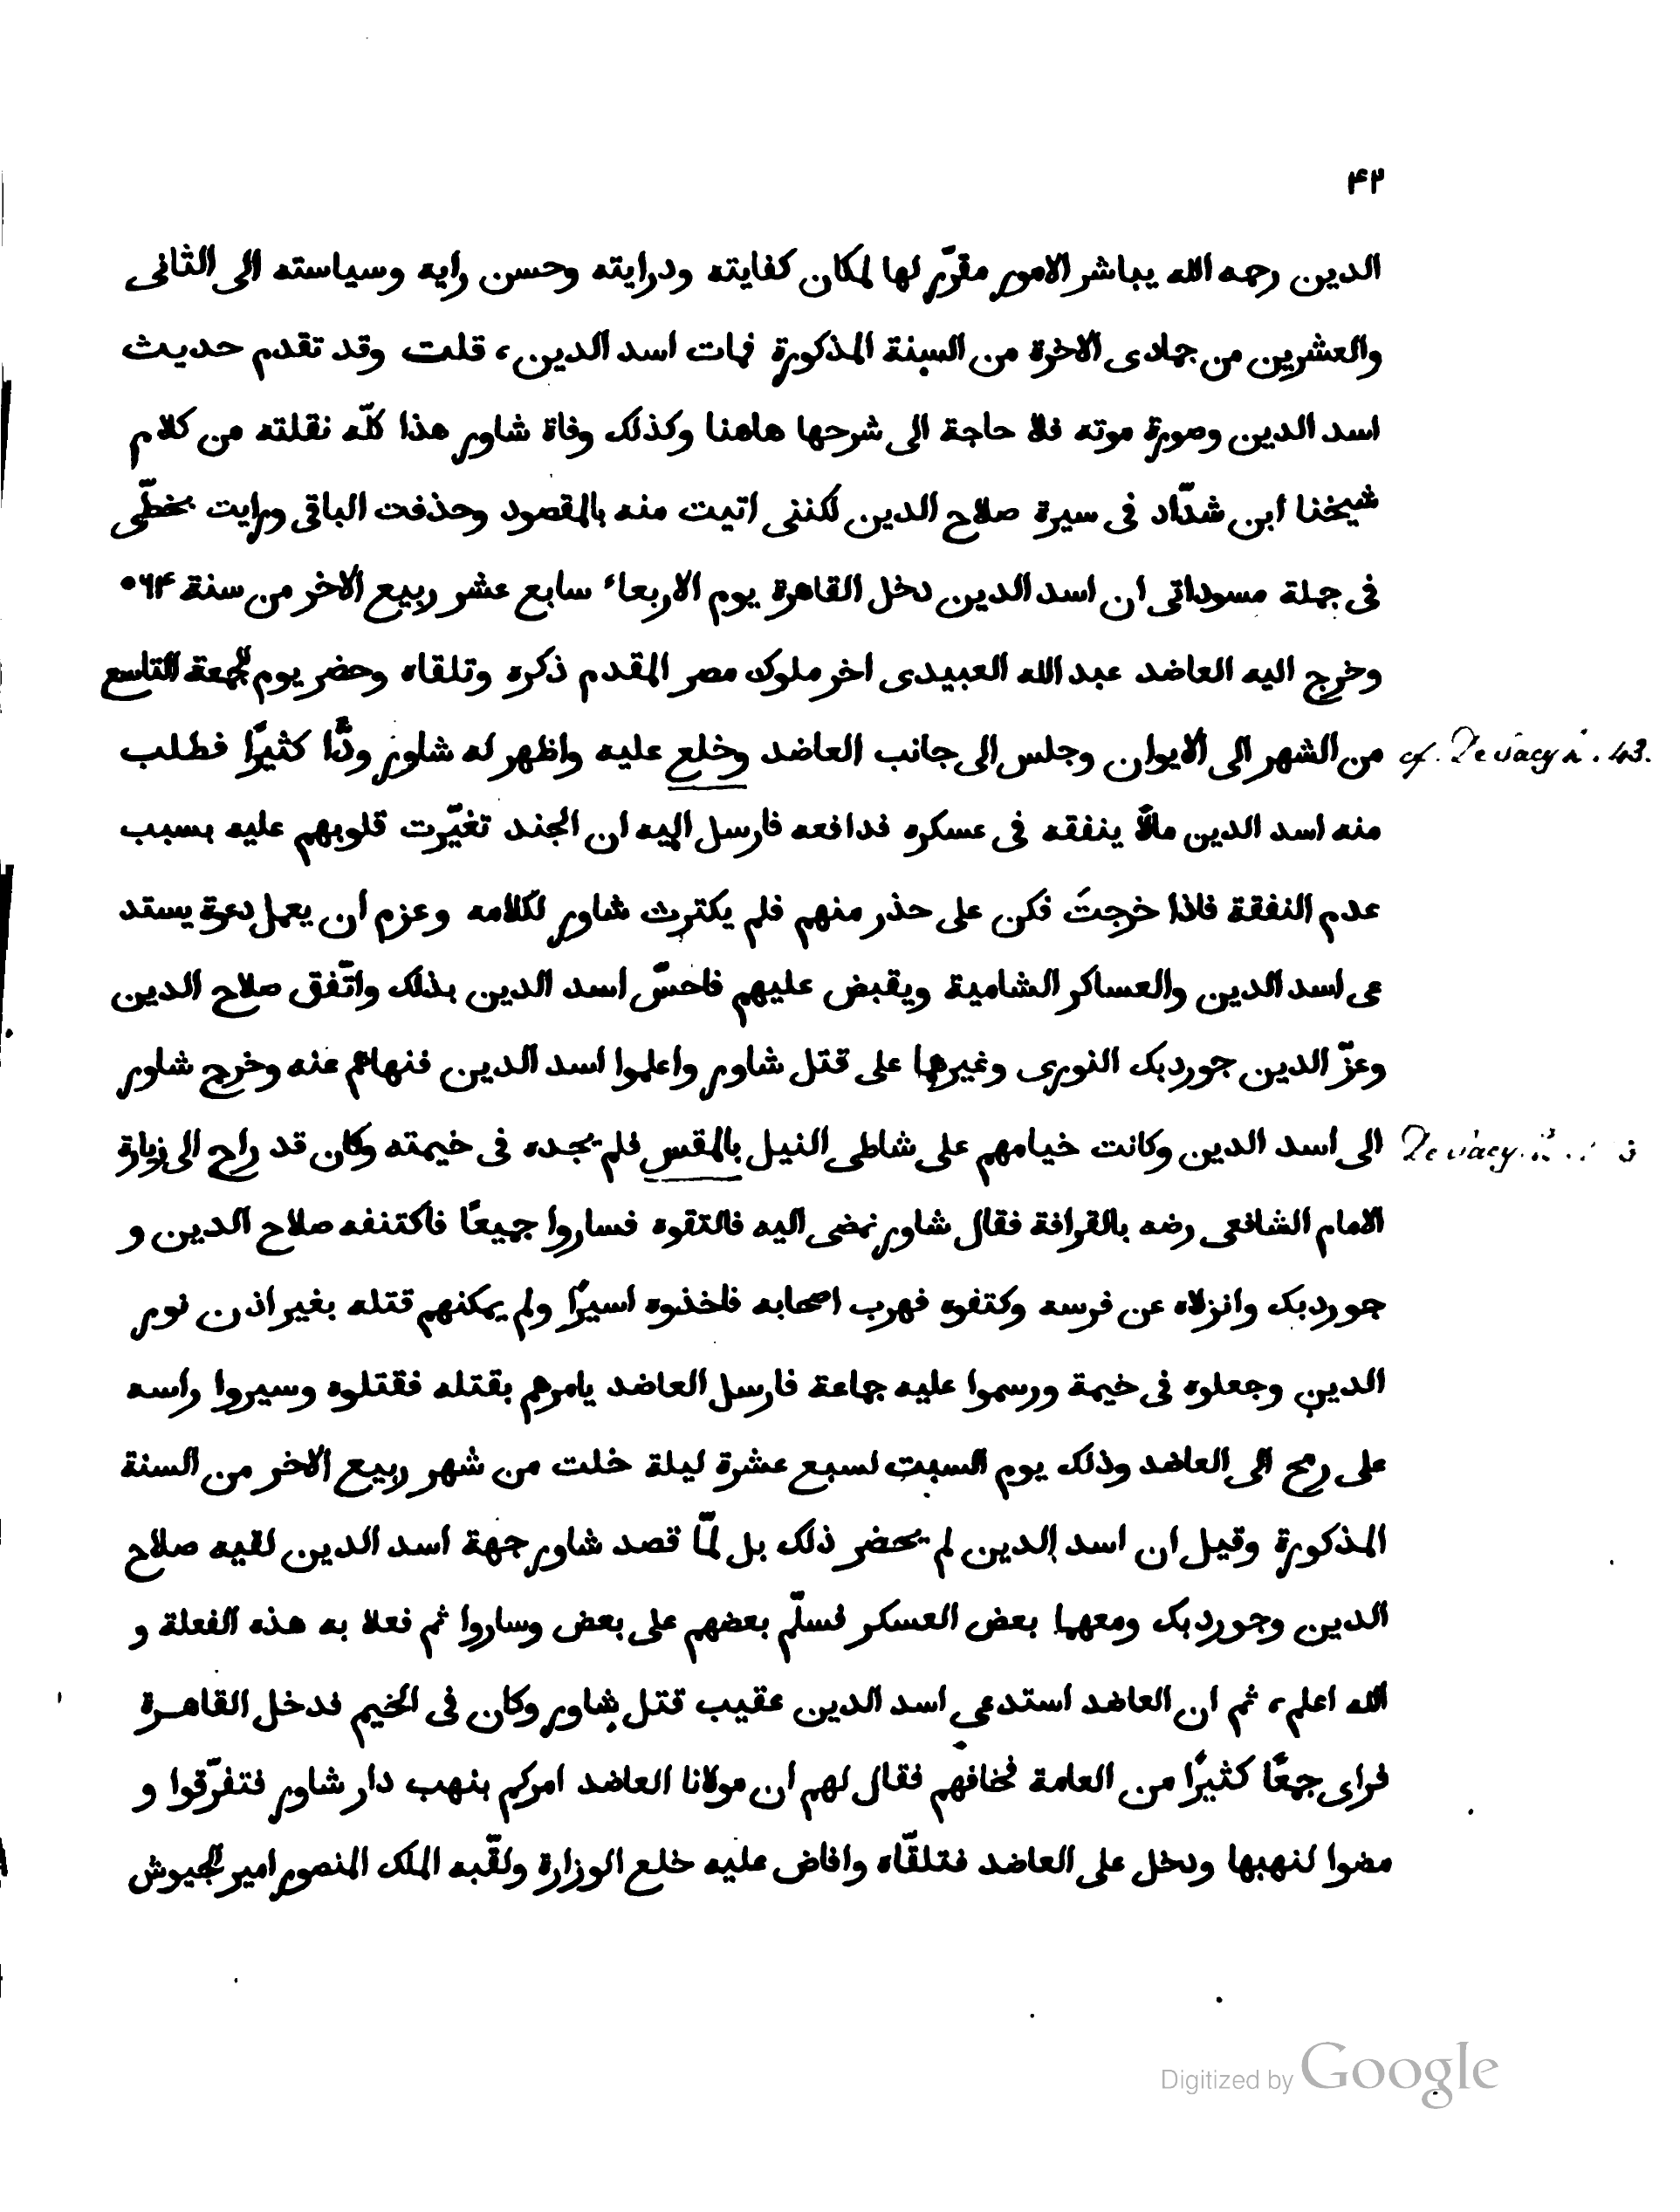 ۴۲
الدين رحمه الله يباشر الامور مقرّر لها لمكان كفايته ودرايته وحسن رايه وسياسته الى الثانى
والعشرين من جمادى الاخرة من السنة المذكورة فمات اسد الدين، قلت وقد تقدم حديث
اسد الدين وصورة موته فلا حاجة الى شرحها هاهنا وكذلك وفاة شاور هذا كلّه نقلته من كلام
شيخنا ابن شدّاد فى سيرة صلاح الدين لكننى اتيت منه بالمقصود وحذفت الباقى ورايت بخطّى
فى جملة مسوداتى ان اسد الدين دخل القاهرة يوم الاربعاء سابع عشر ربيع الاخر من سنة ۵۶۴
وخرج اليه العاضد عبد الله العبيدى اخر ملوك مصر المقدم ذكره وتلقاه وحضر يوم الجمعة التاسع
من الشهر الى الايوان وجلس الى جانب العاضد وخلع عليه واظهر له شاور ودًّا كثيرًا فطلب cf. De Sacy . 43.
منه اسد الدين مالًا ينفقه فى عسكره فدافعه فارسل اليه ان الجند تغيّرت قلوبهم عليه بسبب
عدم النفقة فاذا خرجتَ فكن على حذر منهم فلم يكترث شاور لكلامه وعزم ان يعمل دعوة يستد
عى اسد الدين والعساكر الشامية ويقبض عليهم فاحسّ اسد الدين بذلك واتّفق صلاح الدين
وعزّ الدين جوردبك النورى وغيرهما على قتل شاور واعلموا اسد الدين فنهاهم عنه وخرج شاور
الى اسد الدين وكانت خيامهم على شاطى النيل بالمقس فلم يجده فى خيمته وكان قد راح الى زيارة De Sacy
الامام الشافعى رضه بالقرافة فقال شاور نمضى اليه فالتقوه فساروا جميعًا فاكتنفه صلاح الدين و
جوردبك وانزلاه عن فرسه وكتفوه فهرب اصحابه فاخذوه اسيرًا ولم يمكنهم قتله بغير اذن نور
الدين وجعلوه فى خيمة ورسموا عليه جماعة فارسل العاضد يامرهم بقتله فقتلوه وسيروا راسه
على رمح الى العاضد وذلك يوم السبت لسبع عشرة ليلة خلت من شهر ربيع الاخر من السنة
المذكورة وقيل ان اسد الدين لم يحضر ذلك بل لمّا قصد شاور جهة اسد الدين لقيه صلاح
الدين وجوردبك ومعهما بعض العسكر فسلّم بعضهم على بعض وساروا ثم فعلا به هذه الفعلة و
الله اعلم، ثم ان العاضد استدعى اسد الدين عقيب قتل شاور وكان فى الخيم فدخل القاهرة
فراى جمعًا كثيرًا من العامة فخافهم فقال لهم ان مولانا العاضد امركم بنهب دار شاور فتفرّقوا و
مضوا لنهبها ودخل على العاضد فتلقّاه وافاض عليه خلع الوزارة ولقّبه الملك المنصور امير الجيوش
Digitized by Google